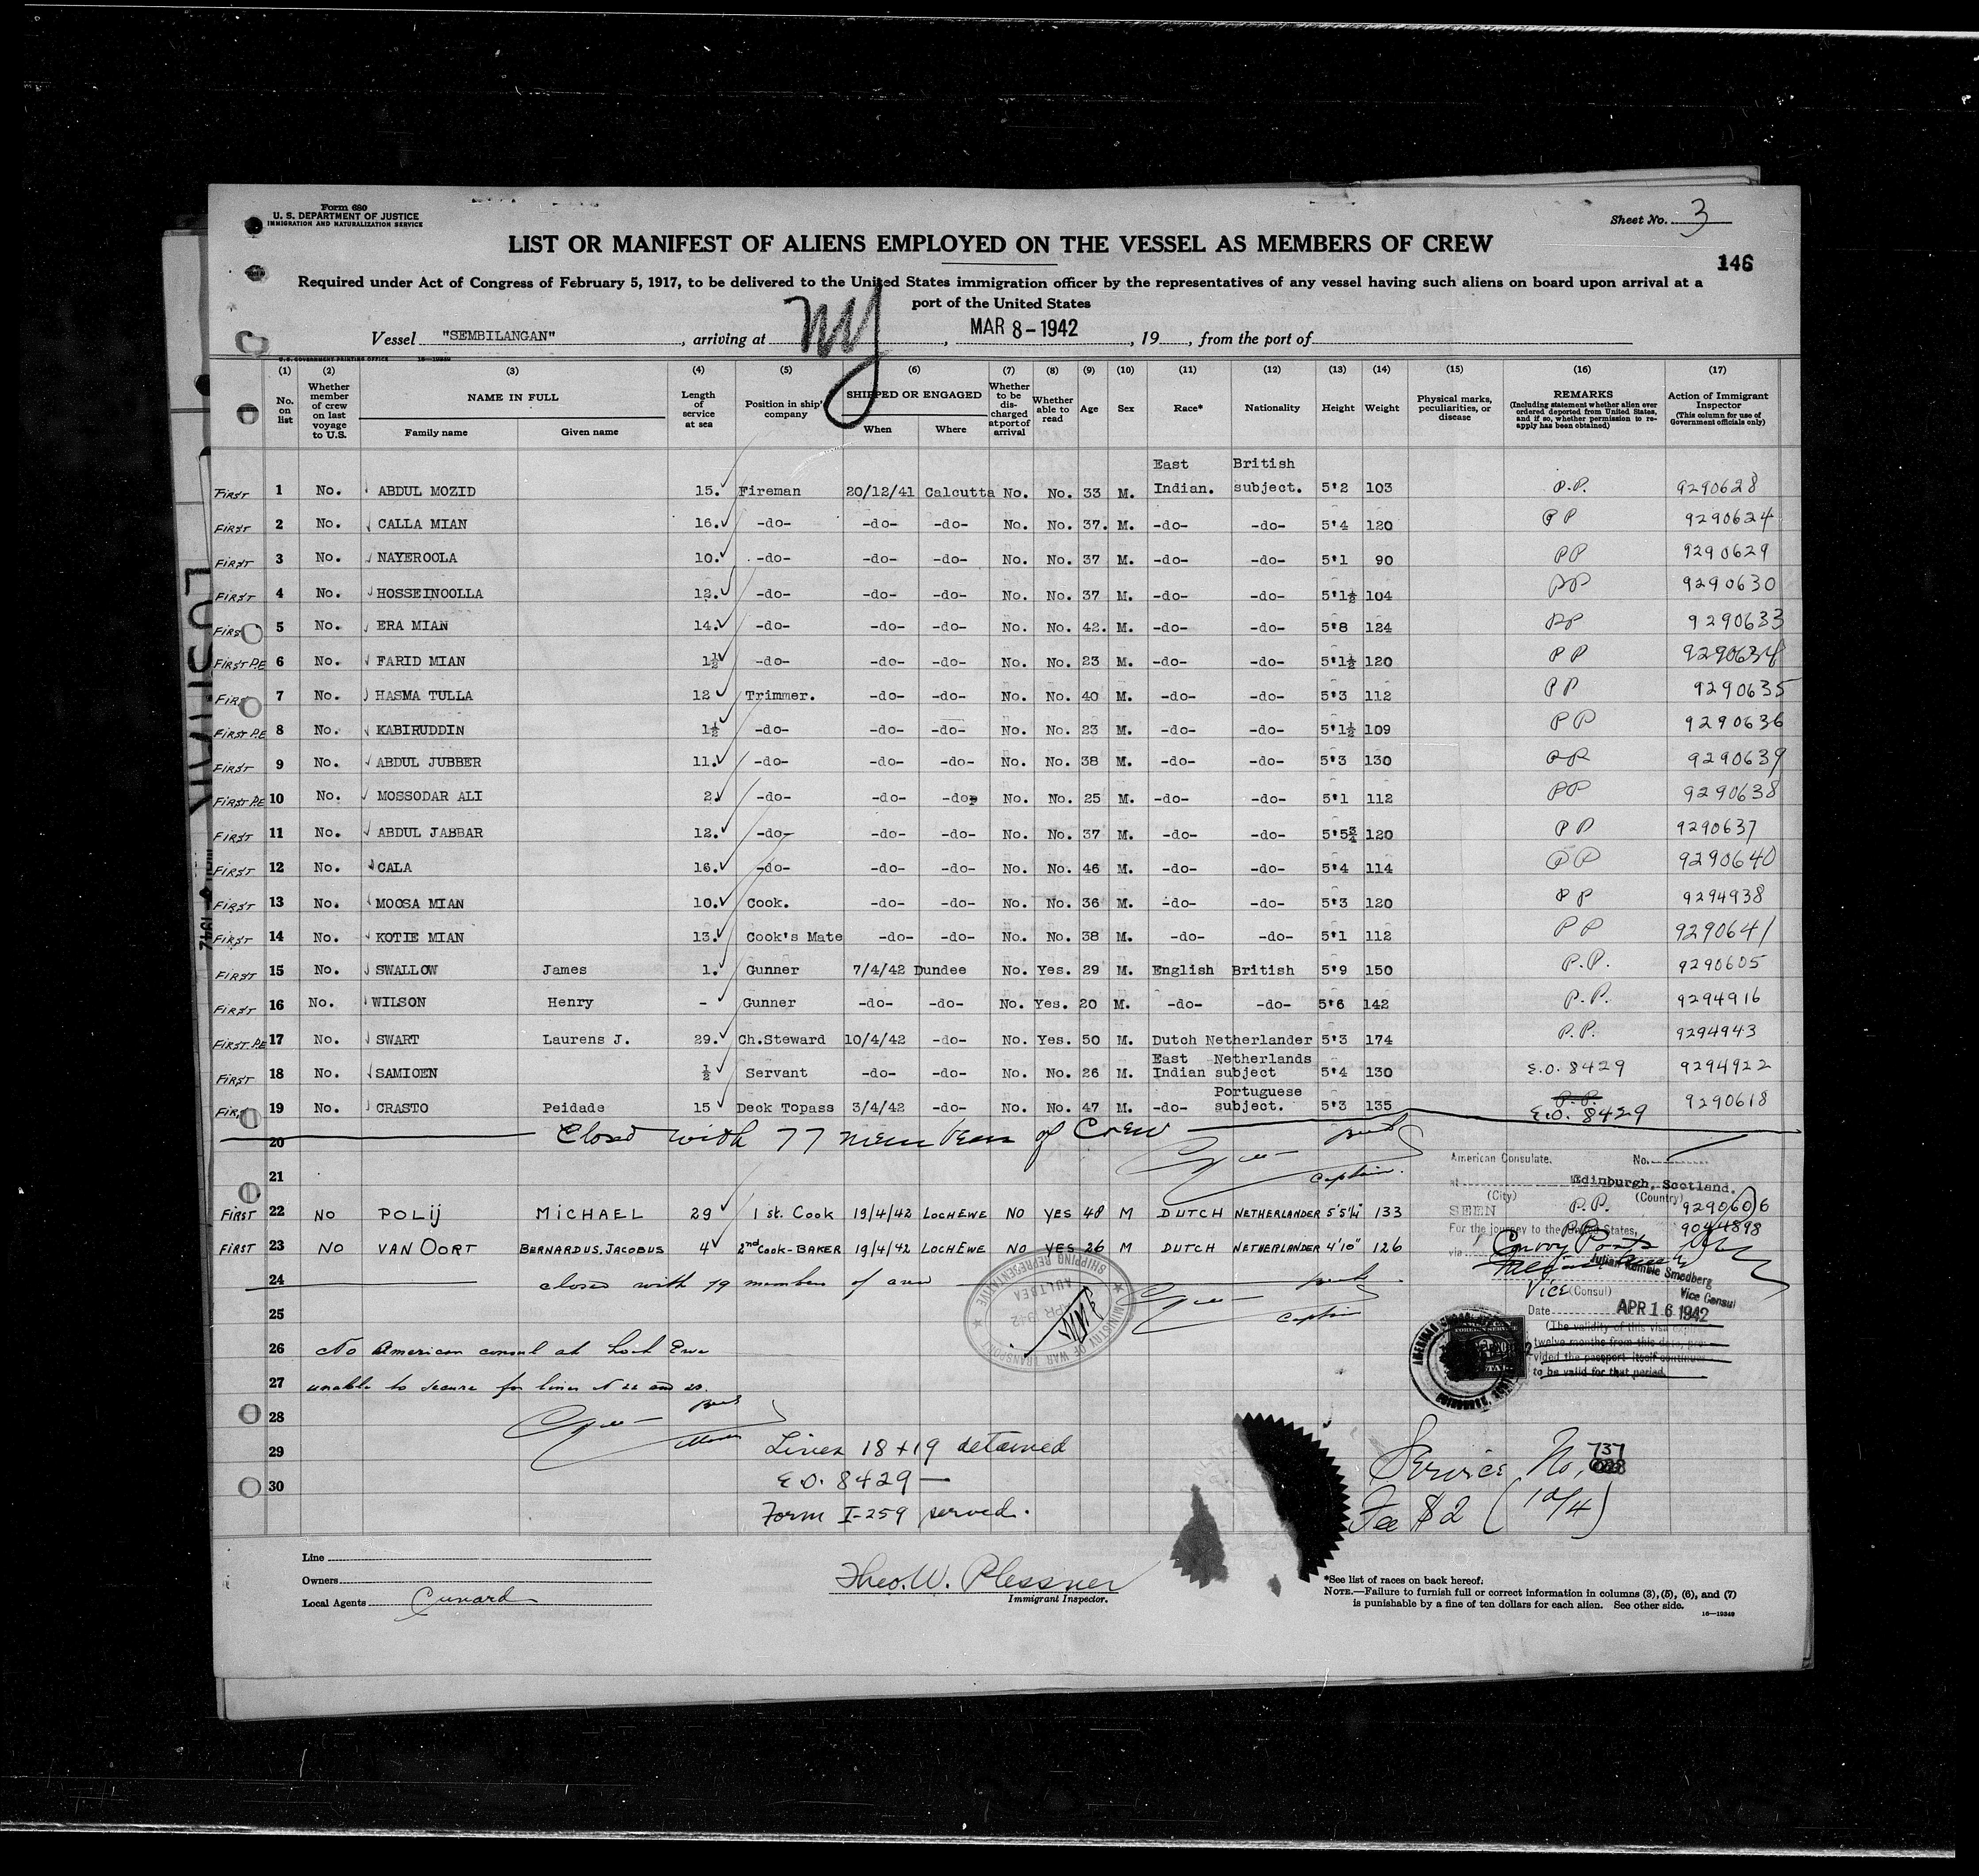 Form 680
U. S. DEPARTMENT OF JUSTICE
IMMIGRATION AND NATURALIZATION SERVICE
Sheet No. 3
LIST OR MANIFEST OF ALIENS EMPLOYED ON THE VESSEL AS MEMBERS OF CREW
146
Required under Act of Congress of February 5, 1917, to be delivered to the United States immigration officer by the representatives of any vessel having such aliens on board upon arrival at a
port of the United States
Vessel "SEMBILANGAN", arriving at NY, MAR 8-1942, 19, from the port of
U.S. GOVERNMENT PRINTING OFFICE 16-19349
(1) (2) (3) (4) (5) (6) (7) (8) (9) (10) (11) (12) (13) (14) (15) (16) (17)
No. on list
Whether member of crew on last voyage to U.S.
NAME IN FULL
Family name Given name
Length of service at sea
Position in ship's company
SHIPPED OR ENGAGED
When Where
Whether to be discharged at port of arrival
Whether able to read
Age Sex Race* Nationality Height Weight
Physical marks, peculiarities, or disease
REMARKS
(Including statement whether alien ever ordered deported from United States, and if so, whether permission to reapply has been obtained)
Action of Immigrant Inspector
(This column for use of Government officials only)
East British
FIRST 1 No. ABDUL MOZID 15. Fireman 20/12/41 Calcutta No. No. 33 M. Indian. subject. 5'2 103 P.P. 9290628
FIRST 2 No. CALLA MIAN 16. -do- -do- -do- No. No. 37. M. -do- -do- 5'4 120 PP 9290624
FIRST 3 No. NAYEROOLA 10. -do- -do- -do- No. No. 37 M. -do- -do- 5'1 90 PP 9290629
FIRST 4 No. HOSSEINOOLLA 12. -do- -do- -do- No. No. 37 M. -do- -do- 5'1½ 104 PP 9290630
FIRST 5 No. ERA MIAN 14. -do- -do- -do- No. No. 42. M. -do- -do- 5'8 124 PP 9290633
FIRST P.E 6 No. FARID MIAN 1½ -do- -do- -do- No. No. 23 M. -do- -do- 5'1½ 120 PP 9290634
FIRST 7 No. HASMA TULLA 12 Trimmer. -do- -do- No. No. 40 M. -do- -do- 5'3 112 PP 9290635
FIRST P.E 8 No. KABIRUDDIN 1½ -do- -do- -do- No. No. 23 M. -do- -do- 5'1½ 109 PP 9290636
FIRST 9 No. ABDUL JUBBER 11. -do- -do- -do- No. No. 38 M. -do- -do- 5'3 130 PP 9290639
FIRST P.E 10 No. MOSSODAR ALI 2. -do- -do- -do- No. No. 25 M. -do- -do- 5'1 112 PP 9290638
FIRST 11 No. ABDUL JABBAR 12. -do- -do- -do- No. No. 37 M. -do- -do- 5'5¾ 120 PP 9290637
FIRST 12 No. CALA 16. -do- -do- -do- No. No. 46 M. -do- -do- 5'4 114 PP 9290640
FIRST 13 No. MOOSA MIAN 10. Cook. -do- -do- No. No. 36 M. -do- -do- 5'3 120 PP 9294938
FIRST 14 No. KOTIE MIAN 13. Cook's Mate -do- -do- No. No. 38 M. -do- -do- 5'1 112 PP 9290641
FIRST 15 No. SWALLOW James 1. Gunner 7/4/42 Dundee No. Yes. 29 M. English British 5'9 150 P.P. 9290605
FIRST 16 No. WILSON Henry - Gunner -do- -do- No. Yes. 20 M. -do- -do- 5'6 142 P.P. 9294916
FIRST P.E 17 No. SWART Laurens J. 29. Ch.Steward 10/4/42 -do- No. Yes. 50 M. Dutch Netherlander 5'3 174 P.P. 9294943
East Netherlands
FIRST 18 No. SAMIOEN ½ Servant -do- -do- No. No. 26 M. Indian subject 5'4 130 E.O. 8429 9294922
Portuguese
FIRST 19 No. CRASTO Peidade 15 Deck Topass 3/4/42 -do- No. No. 47 M. -do- subject. 5'3 135 P.P. E.O. 8429 9290618
20 Closed with 77 members of Crew
Captain.
21
American Consulate. No.
at Edinburgh, Scotland.
(City) (Country)
FIRST 22 NO POLIJ MICHAEL 29 1 st. Cook 19/4/42 LOCH EWE NO YES 48 M DUTCH NETHERLANDER 5'5¼" 133 P.P. 9290606
SEEN
For the journey to the United States,
FIRST 23 NO VAN OORT BERNARDUS JACOBUS 4 2nd Cook-BAKER 19/4/42 LOCH EWE NO YES 26 M DUTCH NETHERLANDER 4'10" 126 P.P. 9044898
via Convoy Ports
Julian Kemble Smedberg
Vice Consul
24 closed with 79 members of crew
Captain
Vice (Consul)
Date APR 16 1942
(The validity of this visa expires
twelve months from this date, pro-
vided the passport itself continues
to be valid for that period.
MINISTRY OF WAR TRANSPORT
SHIPPING REPRESENTATIVE
AULTBEA
APR 1942
25
26 No American consul at Loch Ewe
27 unable to secure for lines N 22 and 23.
28
29 Lines 18 + 19 detained
E.O. 8429 —
30
Form I-259 served.
Service No. 737
Fee $2 (10/4)
Line
Owners
Local Agents Cunard
Theo. W. Plessner
Immigrant Inspector.
*See list of races on back hereof.
NOTE.—Failure to furnish full or correct information in columns (3), (5), (6), and (7)
is punishable by a fine of ten dollars for each alien. See other side.
16—19349